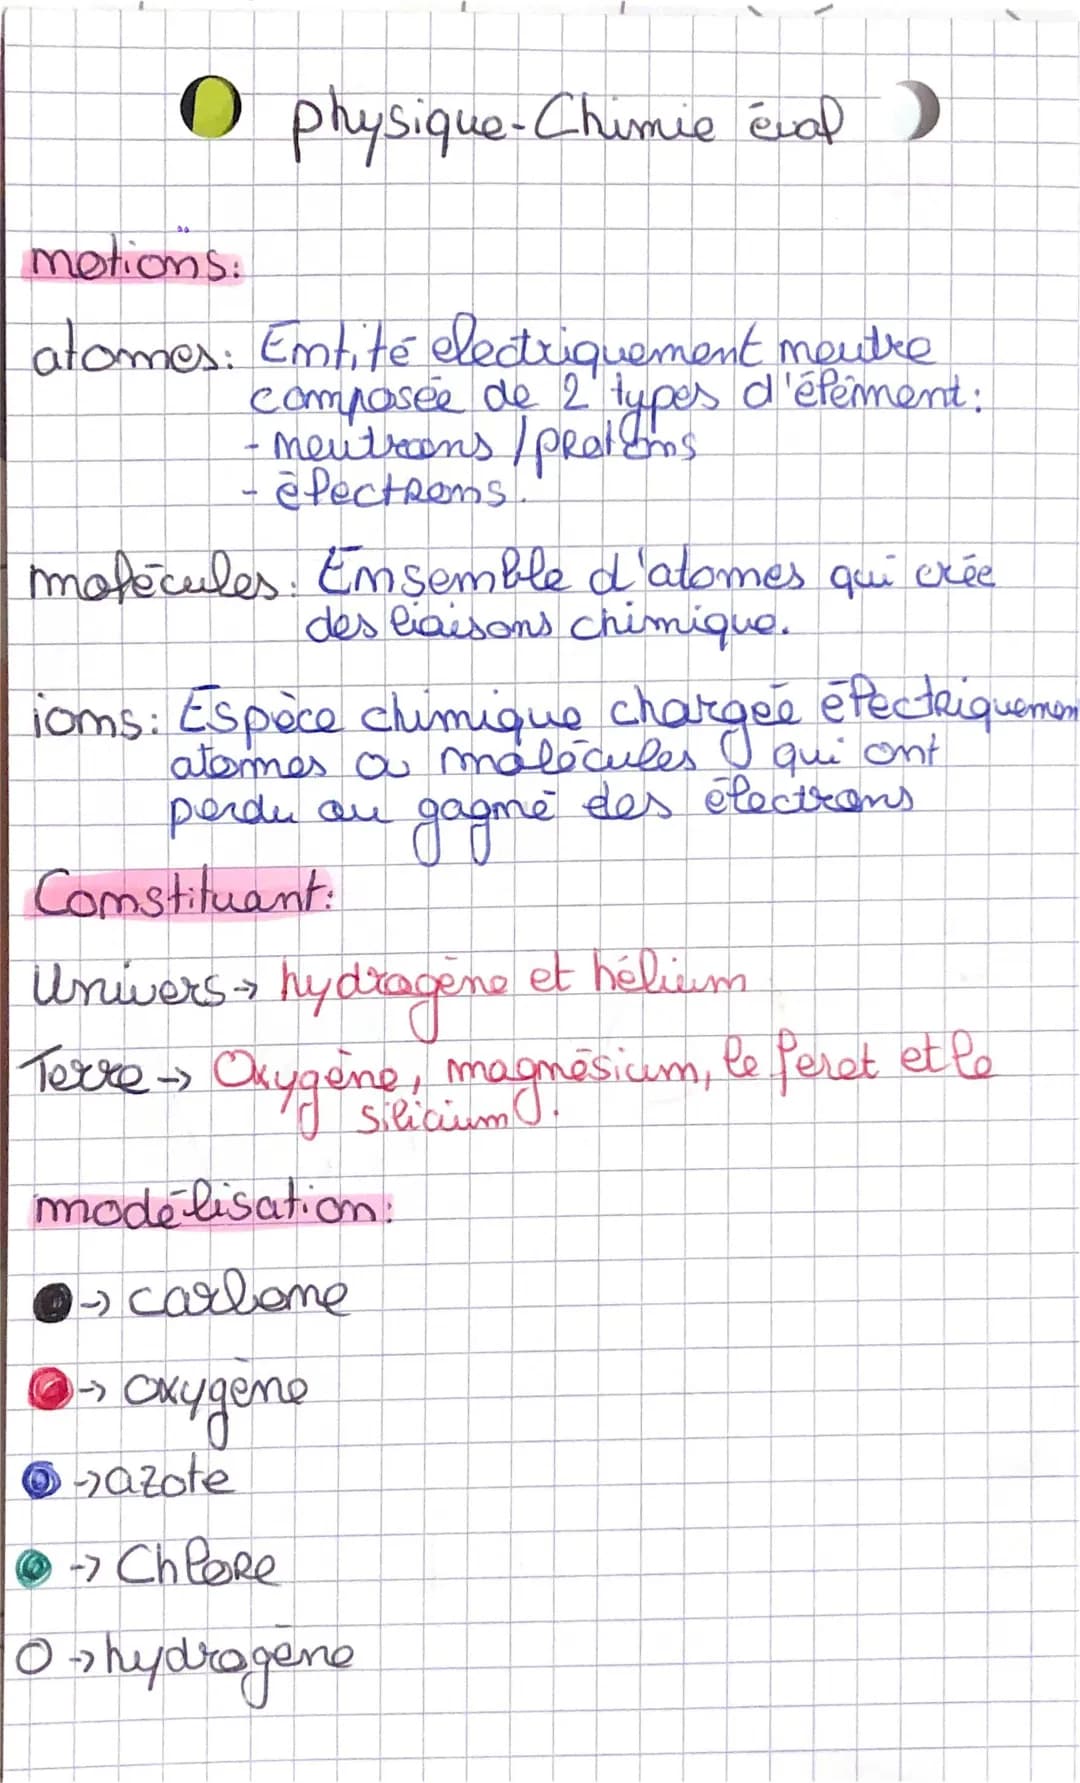 physique-Chimie éval
notions:
atomes: Entité electriquement neutre
composée de 2 types d'élément:
- neutrons / protons
- électrons.
molécules: Ensemble d'atomes qui crée
des liaisons chimique.
ions: Espèce chimique chargée électriquemen
atomes ou molécules qui ont
perdu ou gagné des électrons
Constituant:
Univers → hydrogène et hélium
Terre → Oxygène, magnésium, le feret et le
silicium.
modélisation:
→ carbone
→ oxygène
→ azote
→ Chlore
→ hydrogène